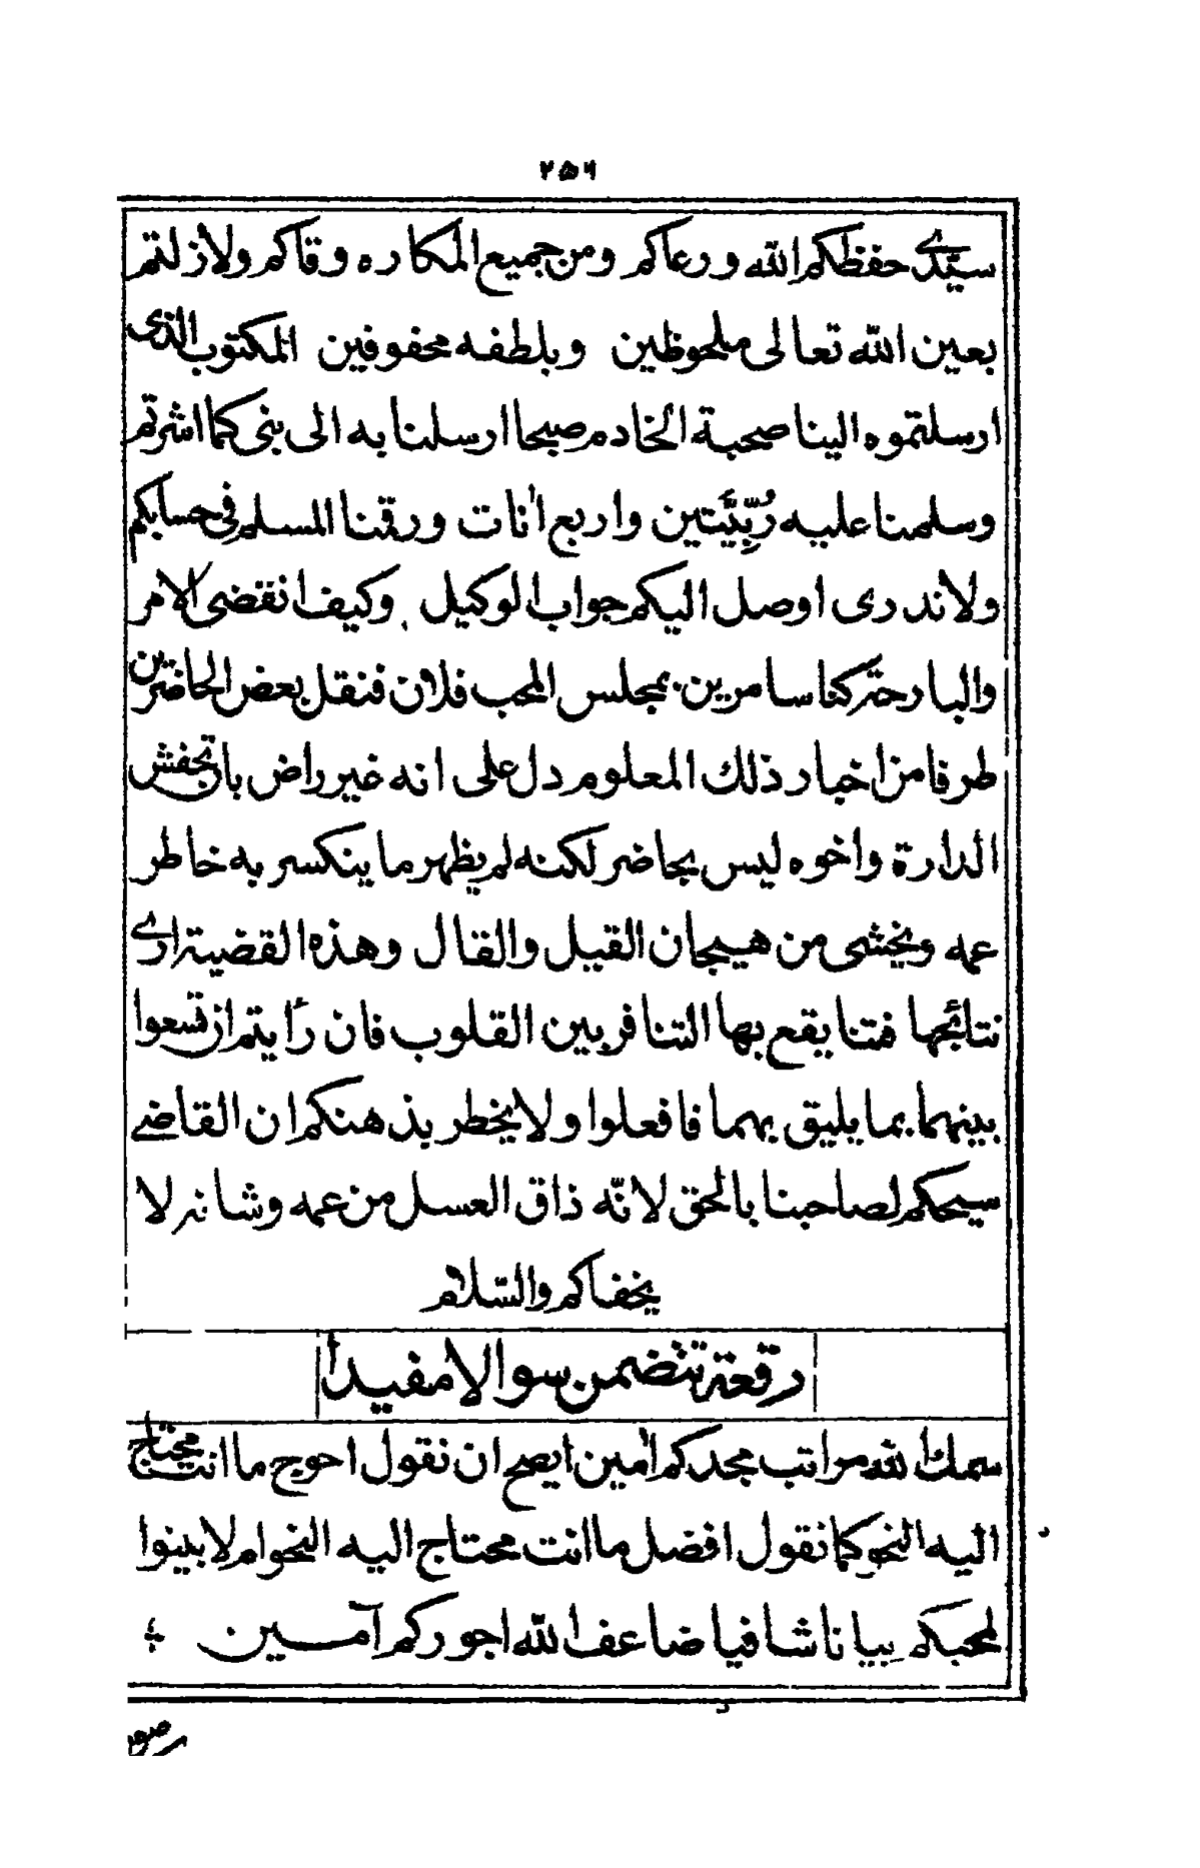 ٢٥٦
سيّدي حفظكم الله ورعاكم ومن جميع المكاره وقاكم ولازلتم
بعين الله تعالى ملحوظين وبلطفه محفوفين المكتوب الذى
ارسلتموه الينا صحبة الخادم صبحا ارسلنا به الى بنى كما اشرتم
وسلمنا عليه رُبّيَّتين واربع انات ورقنا المسلم فى حسابكم
ولاندرى اوصل اليكم جواب الوكيل وكيف انقضى الامر
والبارحة كنا سامرين بمجلس المحب فلان فنقل بعض الحاضرين
طرفا من اخبار ذلك المعلوم دل على انه غير راض بان تخفش
الدارة واخوه ليس بحاضر لكنه لم يظهر ما ينكسر به خاطر
عمه ويخشى من هيجان القيل والقال وهذه القضية ارى
نتائجها فتنا يقع بها التنافر بين القلوب فان رأيتم ان تسعوا
بينهما بما يليق بهما فافعلوا ولا يخطر بذهنكم ان القاضے
سيحكم لصاحبنا بالحق لانّه ذاق العسل من عمه وشانه لا
يخفاكم والسّلام
رقعة تتضمن سوالا مفيدا
سمك الله مراتب مجدكم امين ايصح ان نقول احوج ما انت محتاج
اليه النحو كما نقول افضل ما انت محتاج اليه النحو ام لا بينوا
لمحبكم بيانا شافيا ضاعف الله اجوركم آمــين
صور